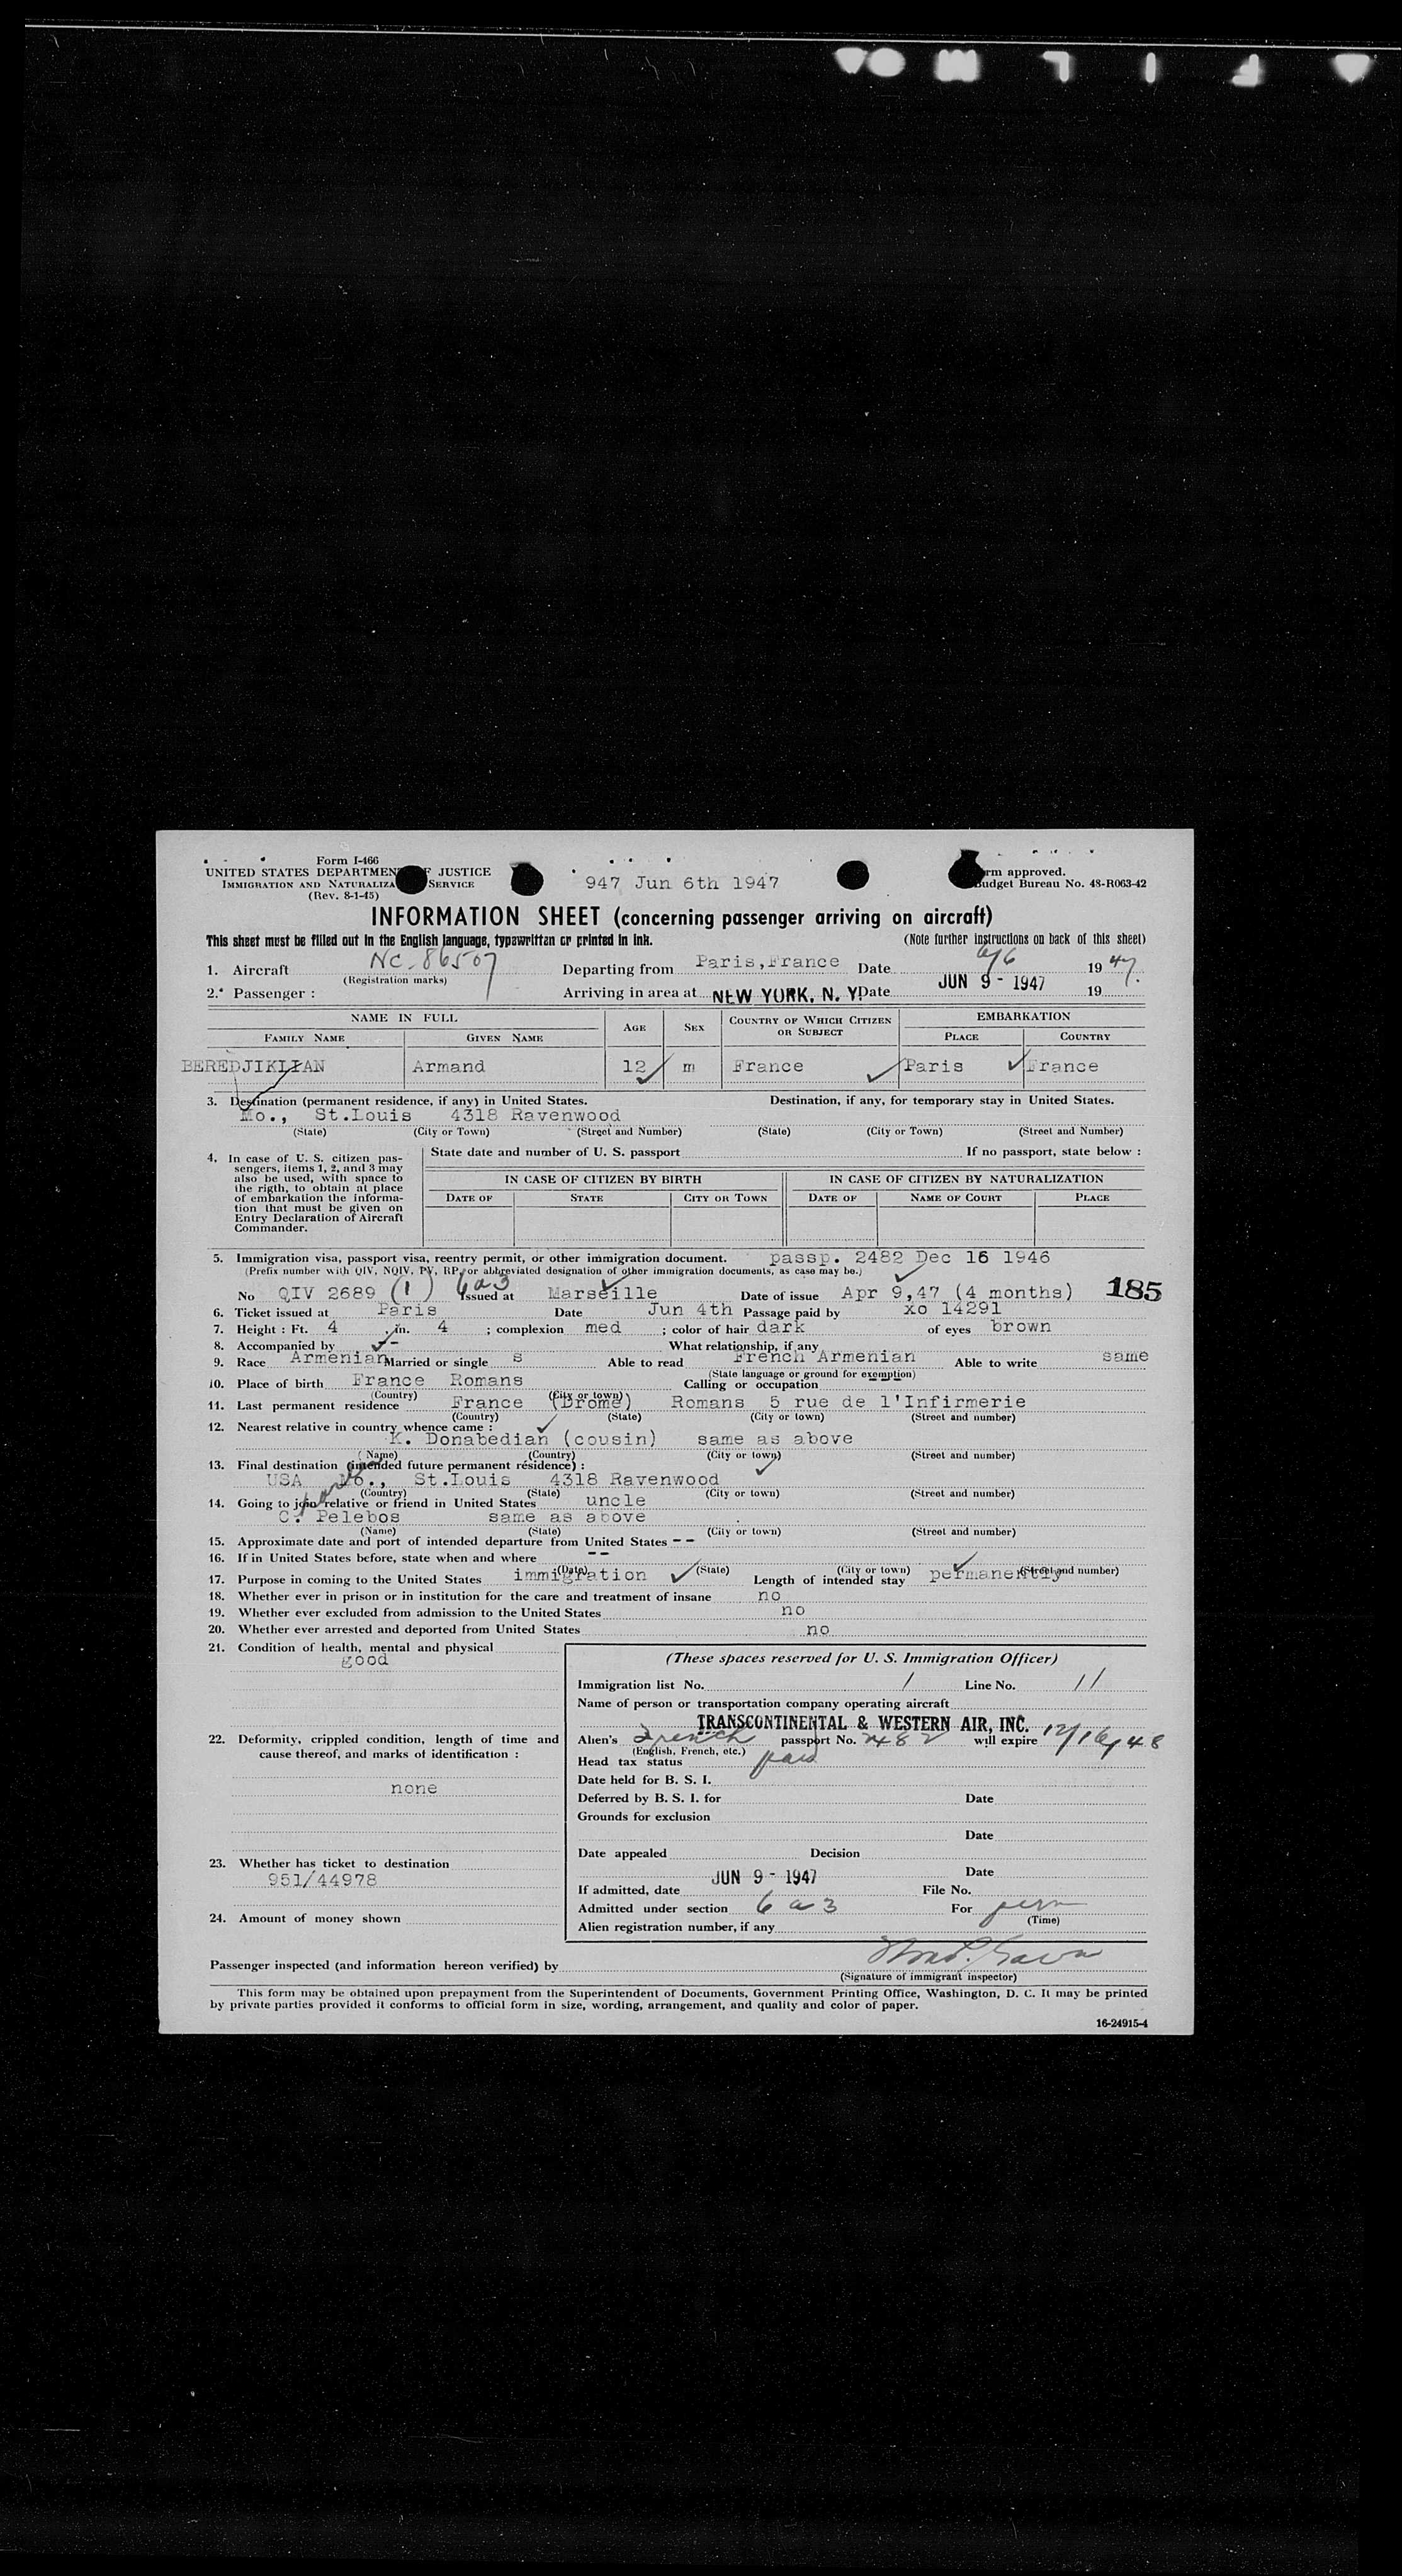 Form I-466
UNITED STATES DEPARTMENT OF JUSTICE
IMMIGRATION AND NATURALIZA SERVICE
(Rev. 8-1-45)
947 Jun 6th 1947
rm approved.
Budget Bureau No. 48-R063-42
INFORMATION SHEET (concerning passenger arriving on aircraft)
This sheet must be filled out in the English language, typewritten or printed in ink. (Note further instructions on back of this sheet)
1. Aircraft NC-86507 Departing from Paris, France Date 6/6 1947.
(Registration marks)
2.* Passenger : Arriving in area at NEW YORK, N. Y. Date JUN 9 - 1947 19
NAME IN FULL AGE SEX COUNTRY OF WHICH CITIZEN OR SUBJECT EMBARKATION
FAMILY NAME GIVEN NAME PLACE COUNTRY
BEREDJIKLIAN Armand 12 m France Paris France
3. Destination (permanent residence, if any) in United States. Destination, if any, for temporary stay in United States.
Mo., St.Louis 4318 Ravenwood
(State) (City or Town) (Street and Number) (State) (City or Town) (Street and Number)
4. In case of U. S. citizen pas-
sengers, items 1, 2, and 3 may
also be used, with space to
the rigth, to obtain at place
of embarkation the informa-
tion that must be given on
Entry Declaration of Aircraft
Commander.
State date and number of U. S. passport If no passport, state below :
IN CASE OF CITIZEN BY BIRTH IN CASE OF CITIZEN BY NATURALIZATION
DATE OF STATE CITY OR TOWN DATE OF NAME OF COURT PLACE
5. Immigration visa, passport visa, reentry permit, or other immigration document. passp. 2482 Dec 16 1946
(Prefix number with QIV, NQIV, PV, RP, or abbreviated designation of other immigration documents, as case may be.)
No QIV 2689 (1) 6a3 Issued at Marseille Date of issue Apr 9,47 (4 months) 185
6. Ticket issued at Paris Date Jun 4th Passage paid by xo 14291
7. Height : Ft. 4 in. 4 ; complexion med ; color of hair dark of eyes brown
8. Accompanied by -- What relationship, if any
9. Race Armenian Married or single s Able to read French Armenian Able to write same
(State language or ground for exemption)
10. Place of birth France Romans Calling or occupation --
(Country) (City or town)
11. Last permanent residence France (Drome) Romans 5 rue de l'Infirmerie
(Country) (State) (City or town) (Street and number)
12. Nearest relative in country whence came :
K. Donabedian (cousin) same as above
(Name) (Country) (City or town) (Street and number)
13. Final destination (intended future permanent residence) :
USA Mo., St.Louis 4318 Ravenwood
(Country) (State) (City or town) (Street and number)
14. Going to join relative or friend in United States uncle
C. Pelebos same as above
(Name) (State) (City or town) (Street and number)
15. Approximate date and port of intended departure from United States --
16. If in United States before, state when and where --
(Date) (State) (City or town) (Street and number)
17. Purpose in coming to the United States immigration Length of intended stay permanently
18. Whether ever in prison or in institution for the care and treatment of insane no
19. Whether ever excluded from admission to the United States no
20. Whether ever arrested and deported from United States no
21. Condition of health, mental and physical
good
22. Deformity, crippled condition, length of time and
cause thereof, and marks of identification :
none
23. Whether has ticket to destination
951/44978
24. Amount of money shown
(These spaces reserved for U. S. Immigration Officer)
Immigration list No. 1 Line No. 11
Name of person or transportation company operating aircraft
TRANSCONTINENTAL & WESTERN AIR, INC.
Alien's French passport No. 2482 will expire 12/16/48
(English, French, etc.)
Head tax status paid
Date held for B. S. I.
Deferred by B. S. I. for Date
Grounds for exclusion
Date
Date appealed Decision
Date
If admitted, date JUN 9 - 1947 File No.
Admitted under section 6 a 3 For perm
(Time)
Alien registration number, if any
Passenger inspected (and information hereon verified) by
(Signature of immigrant inspector)
This form may be obtained upon prepayment from the Superintendent of Documents, Government Printing Office, Washington, D. C. It may be printed
by private parties provided it conforms to official form in size, wording, arrangement, and quality and color of paper.
16-24915-4